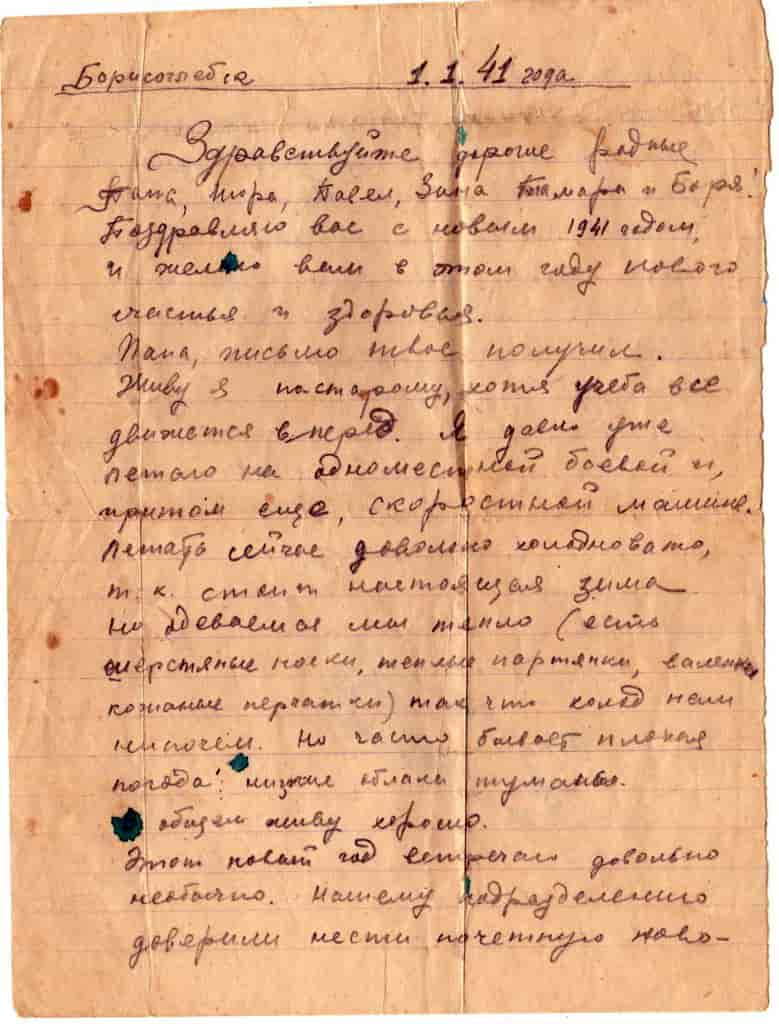 Борисоглебск 1.1.41 года
Здравствуйте дорогие родные
Папа, Шура, Павел, Зина Тамара и Боря!
Поздравляю вас с новым 1941 годом,
и желаю вам в этом году нового
счастья и здоровья.
Папа, письмо твое получил.
Живу я постарому, хотя учеба все
движется вперед. Я давно уже
летаю на одноместной боевой и,
притом еще, скоростной машине.
Летать сейчас довольно холодновато,
т.к. стоит настоящая зима
но одеваемся мы тепло (есть
шерстяные носки, теплые партянки, валенки
кожаные перчатки) так что холод нам
нипочем. Но часто бывает плохая
погода: низкие облака туманы.
общем живу хорошо.
Этот новый год встречаю довольно
необычно. Нашему подразделению
доверили нести почетную ново-